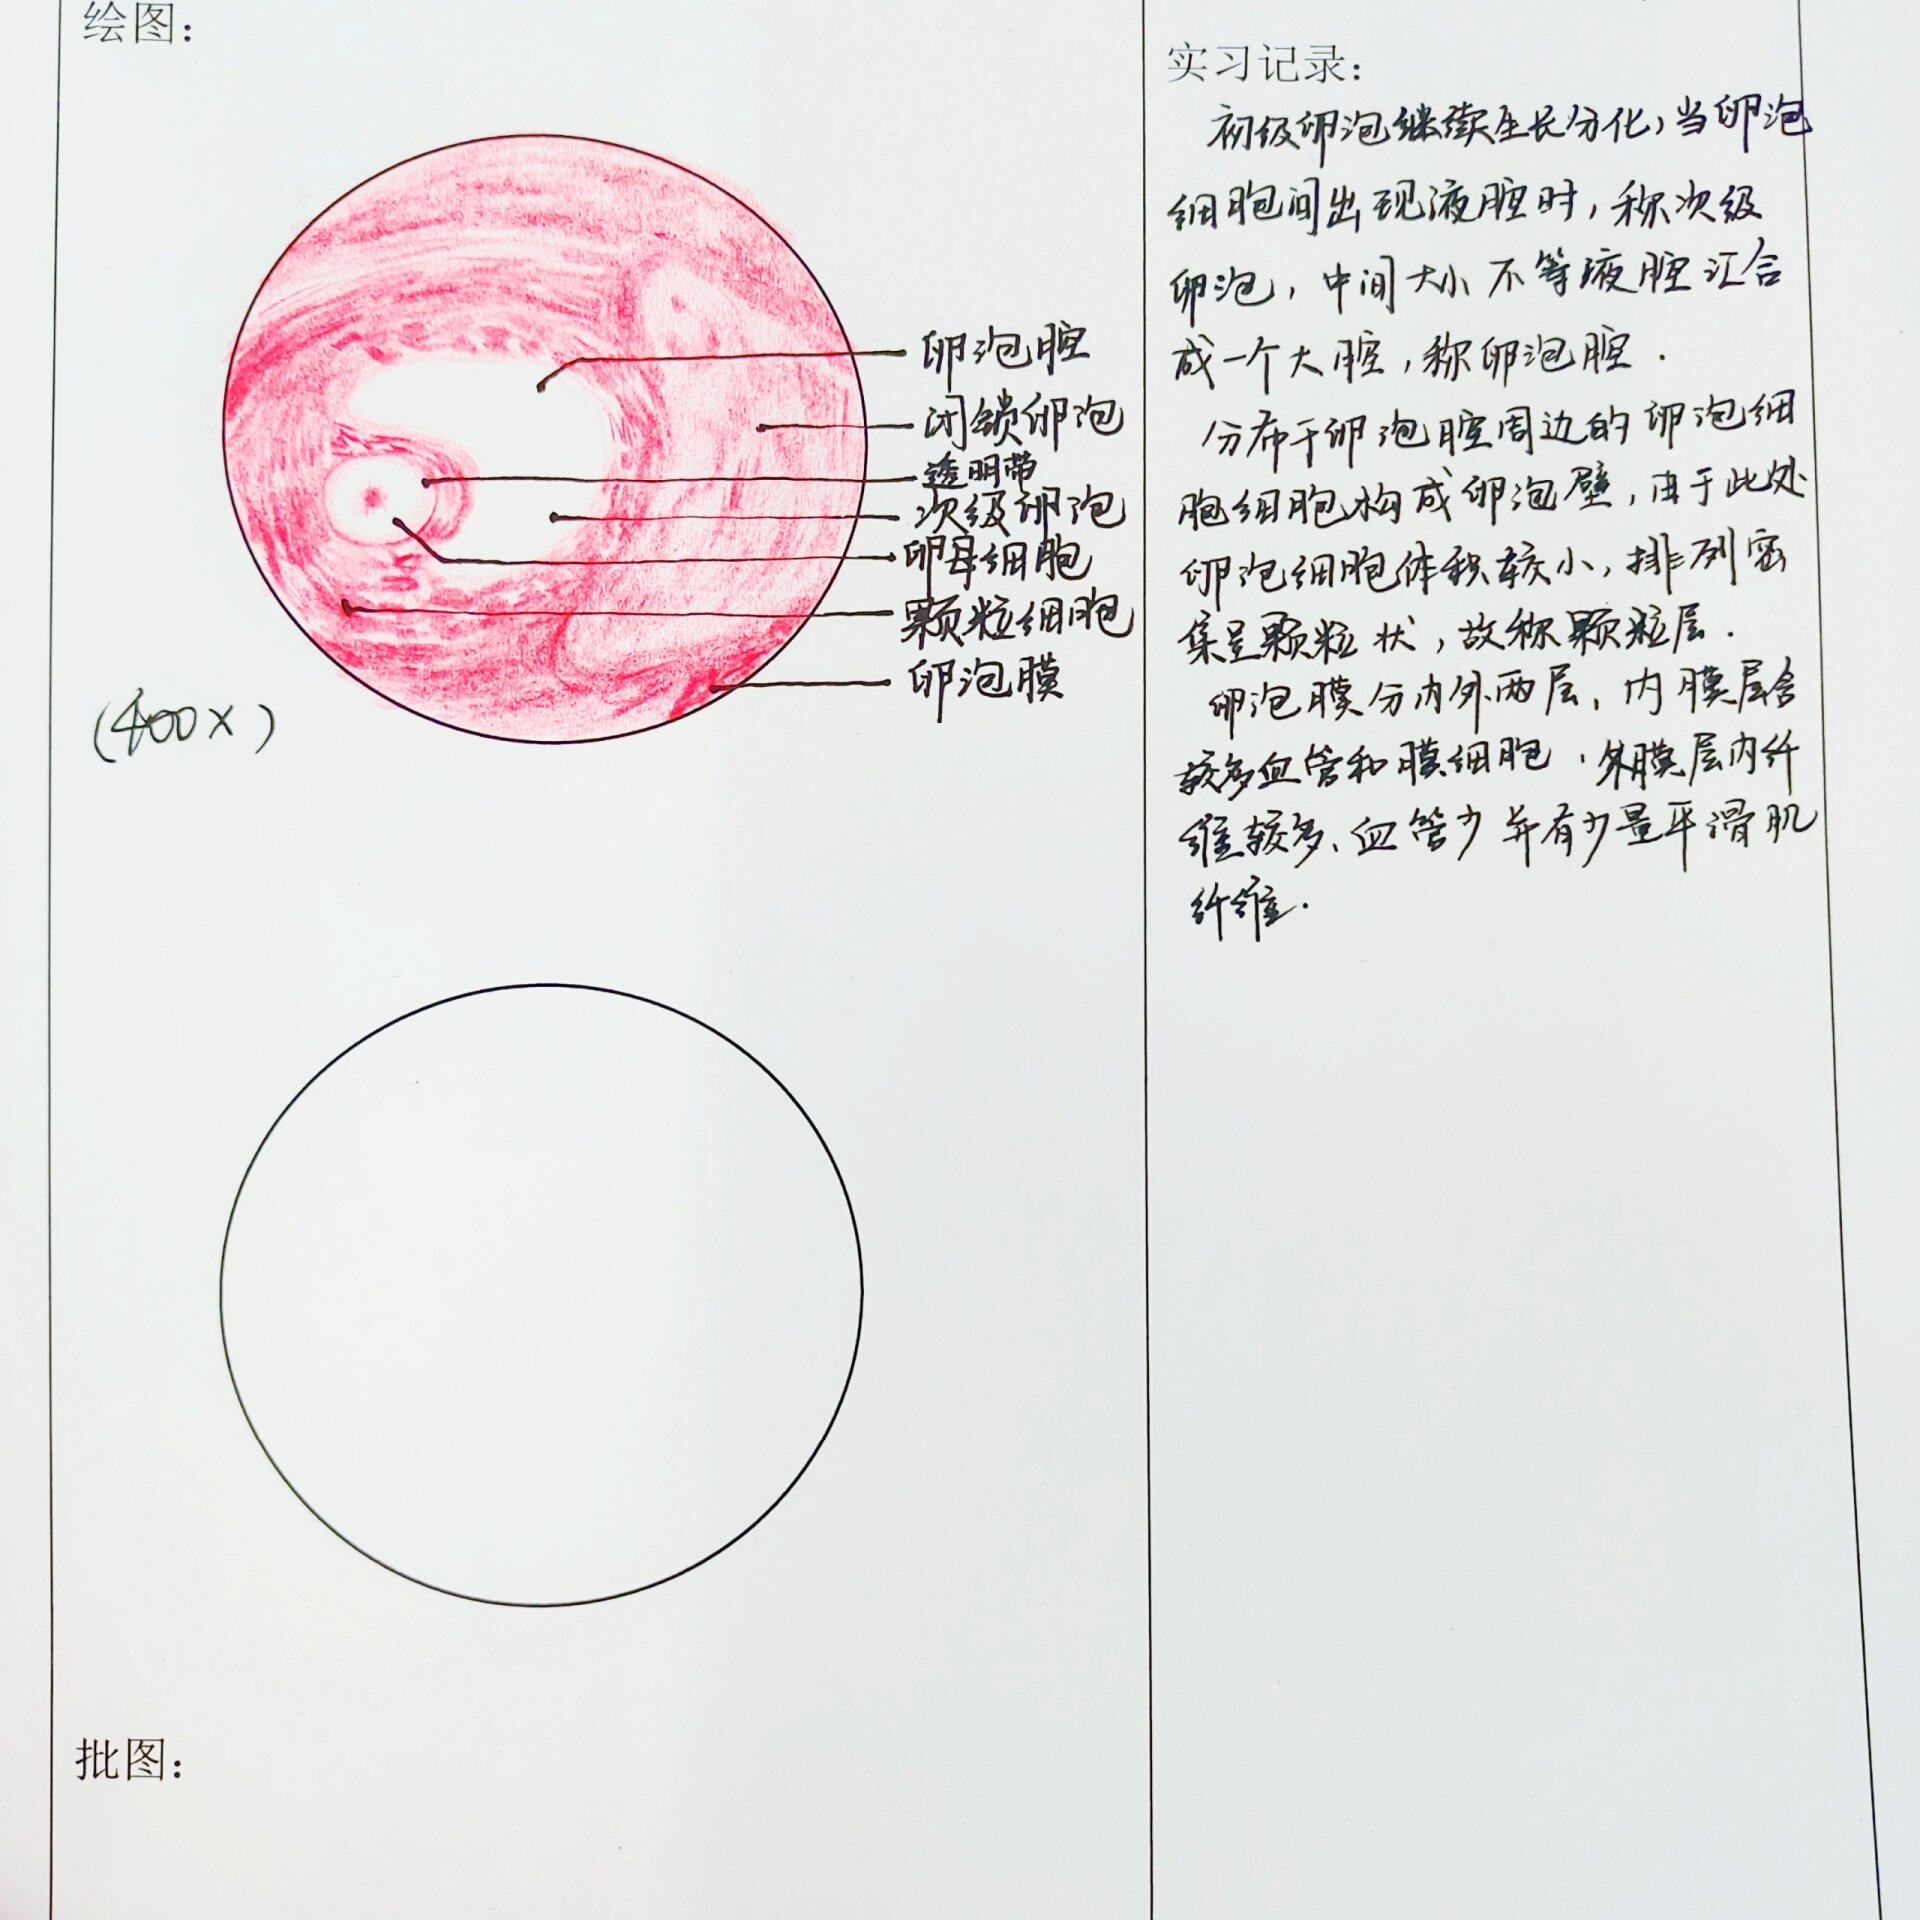 绘图：
卵泡腔
闭锁卵泡
透明带
次级卵泡
卵母细胞
颗粒细胞
卵泡膜
(400×)
批图：
实习记录：
初级卵泡继续生长分化，当卵泡
细胞间出现液腔时，称次级
卵泡，中间大小不等液腔汇合
成一个大腔，称卵泡腔．
分布于卵泡腔周边的卵泡细
胞细胞构成卵泡壁，由于此处
卵泡细胞体积较小，排列密
集呈颗粒状，故称颗粒层．
卵泡膜分内外两层，内膜层含
较多血管和膜细胞，外膜层内纤
维较多、血管少并有少量平滑肌
纤维．